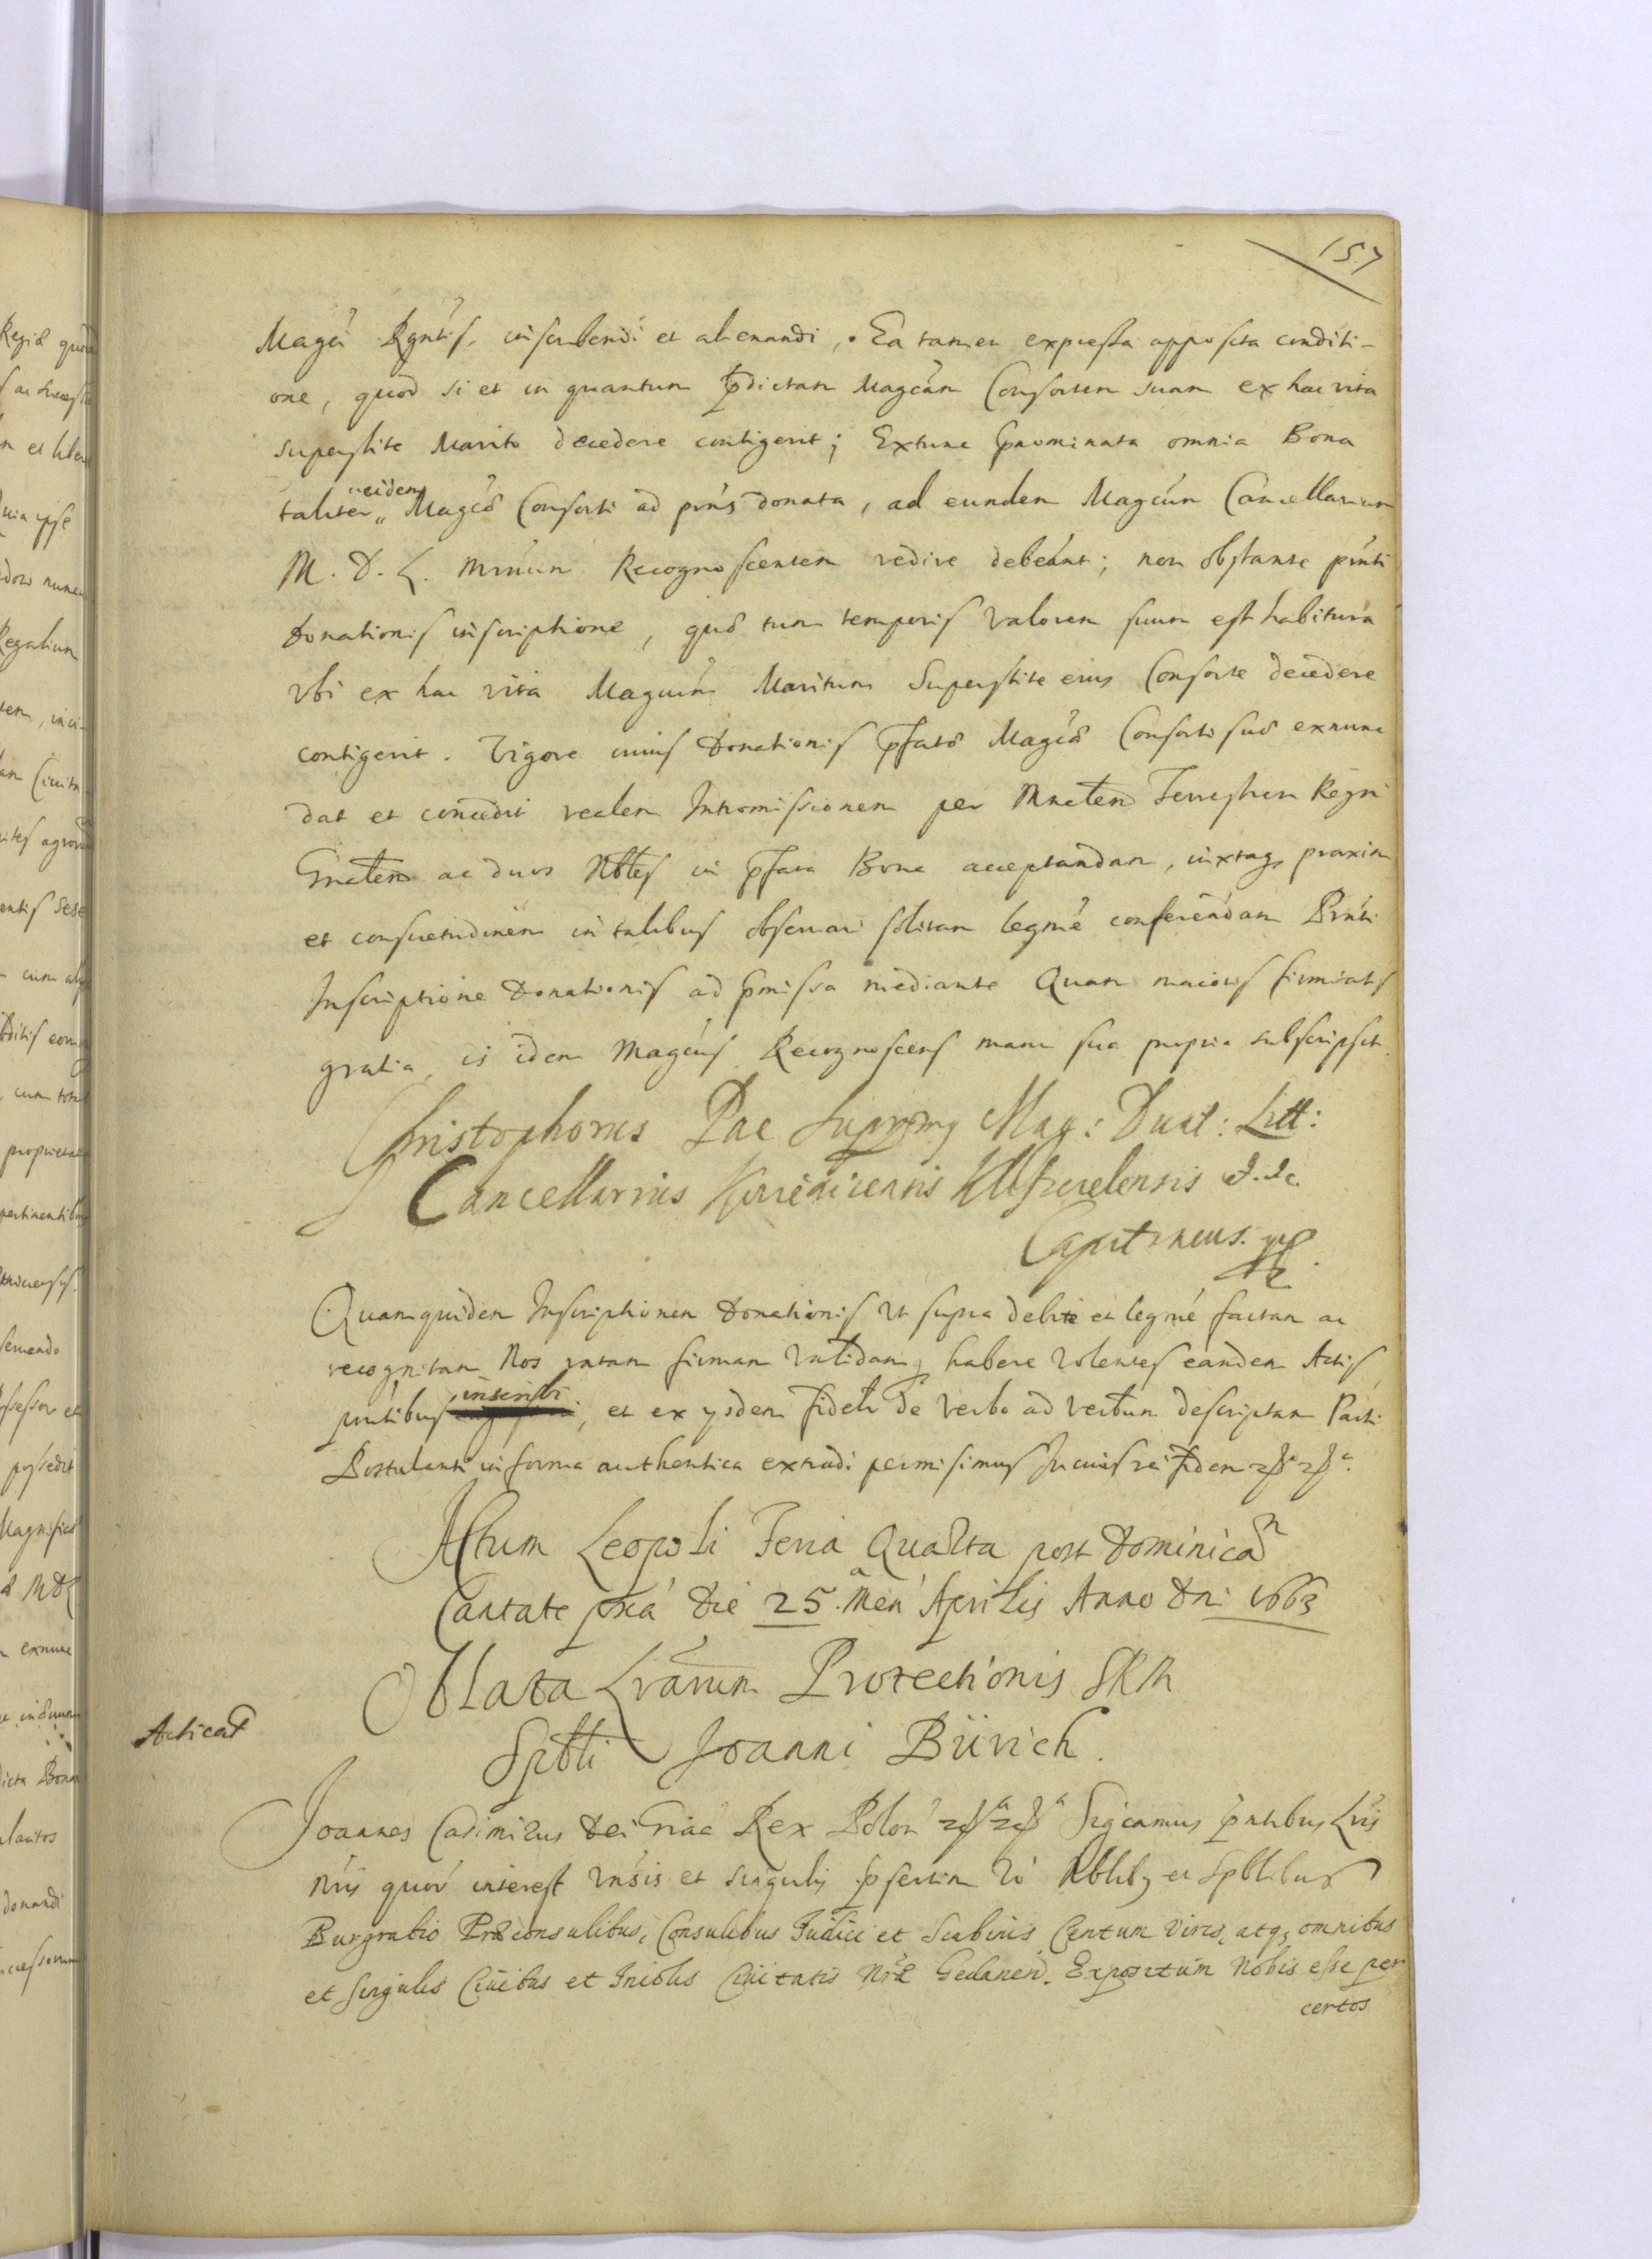 157
Magcí Rgntis, inscribendi et alienandi,. Ea tamen expressa apposita conditi-
one, quod si et in quantum pdictam Magcam Consortem suam ex hac vita
superstite Marito decedere contigerit; Extunc pnominata omnia Bona
eidem
taliter Magcæ Consorti ad pns donata, ad eundem Magcum Cancellarium
M. D. L. Recognoscentem redire debeant; non obstante pnti
Donationis inscriptione, quæ tum temporis valorem suum est habitura
vbi ex hac vita Magcum Maritum Superstite eius Consorte decedere
contigerit. Vigore cuius Donationis pfatæ Magcæ Consorti suæ exnunc
dat et concedit realem Intromissionem per Mnctem Terrestrem Regni
Gnalem ac duos Nbles in pfata Bona acceptandam, iuxtaq praxim
et consuetudinem in talibus obseruari solitam legme conferendam Pnti
Inscriptione Donationis ad pmissa mediante Quam maioris firmitatis
gratia, is idem Magcus Recognoscens manu sua propria subscripsit.
Christophorus Pac Supremg Mag: Ducat: Litt:
Cancellarius &c.
Capitaneus. mp
Quamquidem Inscriptionem Donationis vt supra debite et legme factam ac
recognitam Nos ratam firmam validamq habere volentes eandem Actis
pntibus inscribi, et ex ysdem fideli de verbo ad verbum descriptam Parti
Postulanti in forma authentica extradi permisimus In cuius rei fidem
Actum Leopoli Feria Quarta post Dominicam
Cantate pxa die 25. Men Aprilis Anno Dni 1663
Oblata Lrarum Protectionis SRM
Acticat
Spbli Joanni Bürich.
Joannes Casimirus Dei Gria Rex Polon Sigcamus pntibus Lris
nris quor interest vnsis et singulis psertim vo Nblibg et Spblibus
Burgrabio Præconsulibus, Consulibus Judici et Scabinis, Centum Viris, atqz omnibus
et singulis Ciuibus et Incolis Ciuitatis Nræ Gedanen. Expositum Nobis esse per
certos